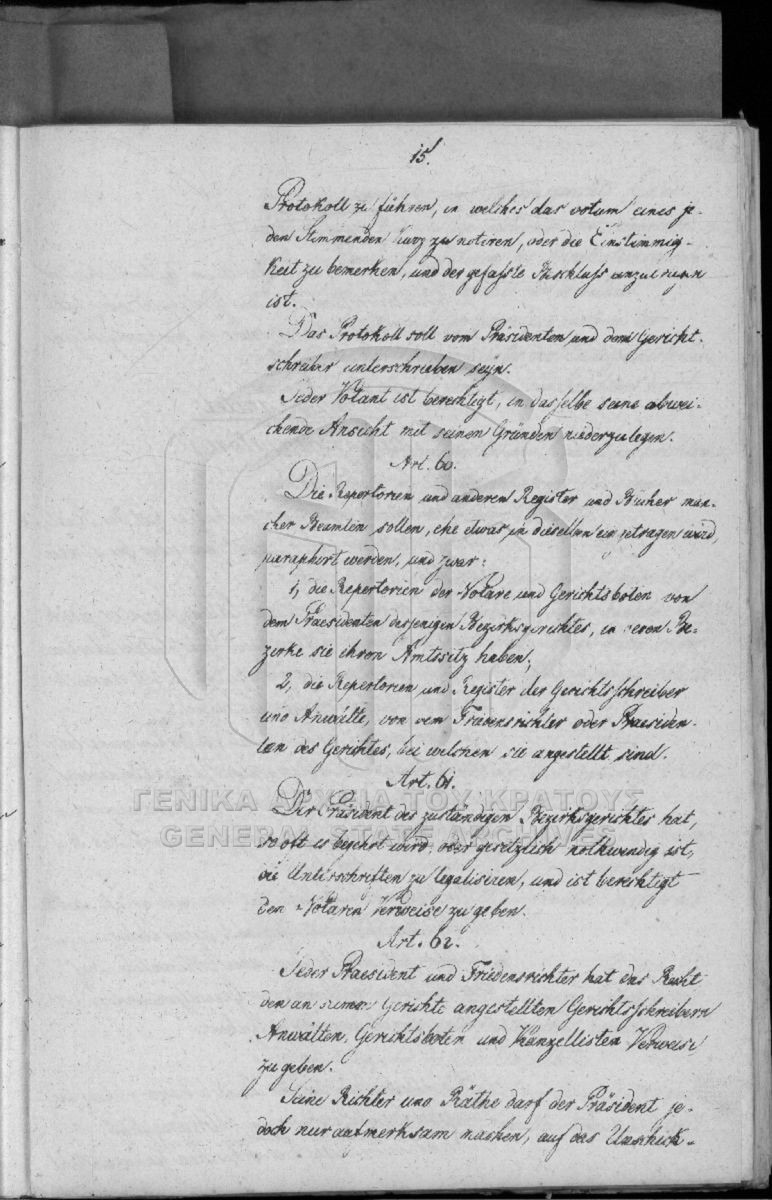 15.
Protokoll zu führen, in welches das votum eines je-
den Stimmenden kurz zu notiren, oder die Einstimmig-
keit zu bemerken, und der gefasste Beschluss
ist.
Das Protokoll soll vom Präsidenten und dem Gericht-
schreiber unterschrieben seyn.
Jeder Votant ist berechtigt, in dasselbe seine abwei-
chende Ansicht mit seinen Gründen niederzulegen.
Art. 60.
Die Repertorien und anderen Register und Bücher man-
cher Beamten sollen, ehe etwas in dieselben eingetragen wird,
paraphirt werden, und zwar:
1, die Repertorien der Notare und Gerichtsboten von
dem Praesidenten desjenigen Bezirksgerichtes, in deren Be-
zirke sie ihren Amtssitz haben;
2, die Repertorien und Register der Gerichtsschreiber
und Anwälte, von dem Friedensrichter oder Praesiden-
ten des Gerichtes, bei welchen sie angestellt sind.
Art. 61.
ΓΕΝΙΚΑ ΑΡΧΕΙΑ ΤΟΥ ΚΡΑΤΟΥΣ
Der Präsident des zuständigen Bezirksgerichtes hat,
GENERAL STATE ARCHIVES
so oft es begehrt wird, oder gesetzlich nothwendig ist,
die Unterschriften zu legalisiren, und ist berechtigt
den Notaren Verweise zu geben.
Art. 62.
Jeder Praesident und Friedensrichter hat das Recht
den an seinem Gerichte angestellten Gerichtsschreibern
Anwälten, Gerichtsboten und Kanzellisten Verweise
zu geben.
Seine Richter und Räthe darf der Präsident je-
doch nur aufmerksam machen, auf das Unschick-